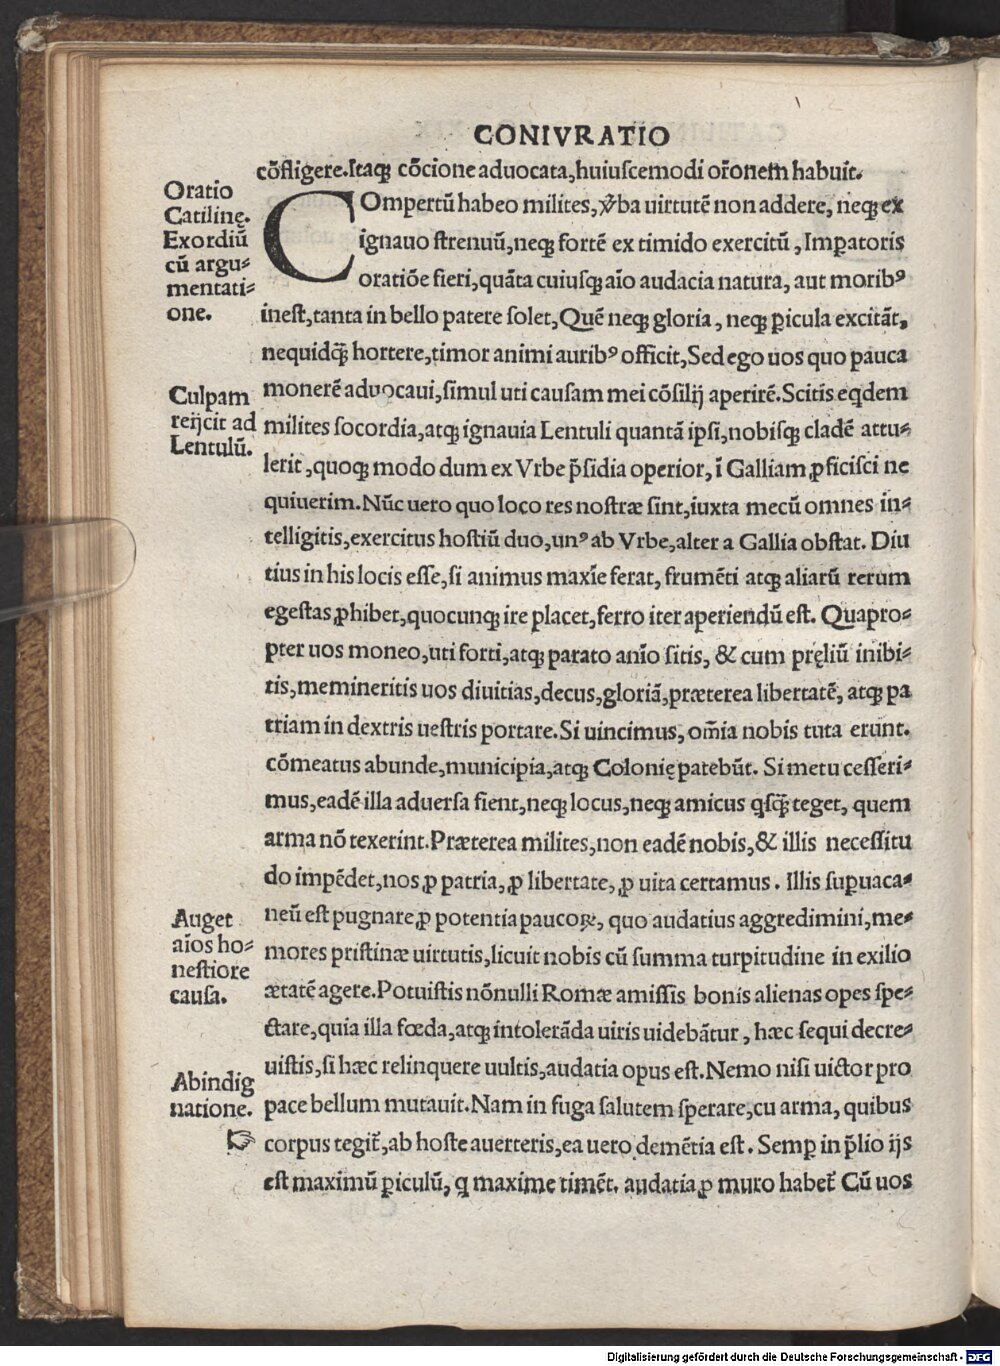 CONIVRATIO
cõfligere.Itaqꝫ cõcione aduocata,huiuſcemodi or̃onem habuit.
Oratio
Catilinę.
Exordiũ
cũ argu⸗
mentati⸗
one.
COmpertũ habeo milites, ꝟba uirtutẽ non addere, neqꝫ ex
ignauo ſtrenuũ,neqꝫ fortẽ ex timido exercitũ, Imꝑatoris
oratiõe fieri,quãta cuiuſqꝫ aĩo audacia natura, aut moribꝰ
ineſt,tanta in bello patere ſolet,Quẽ neqꝫ gloria, neqꝫ ꝑicula excitãt,
nequidq̃ꝫ hortere,timor animi auribꝰ officit,Sed ego uos quo pauca
monerẽ aduocaui,ſimul uti cauſam mei cõſilij aperirẽ.Scitis eq̇dem
Culpam
reijcit ad
Lentulũ.
milites ſocordia,atqꝫ ignauia Lentuli quantã ipſi,nobiſqꝫ cladẽ attu⸗
lerit,quoqꝫ modo dum ex Vrbe p̃ſidia operior, ĩ Galliam ꝓficiſci ne
quiuerim.Nũc uero quo loco res noſtræ ſint,iuxta mecũ omnes in⸗
telligitis,exercitus hoſtiũ duo,unꝰ ab Vrbe,alter a Gallia obſtat. Diu
tius in his locis eſſe,ſi animus maxĩe ferat, frumẽti atqꝫ aliarũ rerum
egeſtas ꝓhibet,quocunqꝫ ire placet,ferro iter aperiendũ eſt. Quapro⸗
pter uos moneo,uti forti,atqꝫ parato anĩo ſitis, & cum pręliũ inibi⸗
tis,memineritis uos diuitias,decus,gloriã,præterea libertatẽ, atqꝫ pa
triam in dextris ueſtris portare.Si uincimus, om̃ia nobis tuta erunt.
cõmeatus abunde,municipia,atqꝫ Colonię patebũt. Si metu ceſſeri⸗
mus,eadẽ illa aduerſa fient,neqꝫ locus,neqꝫ amicus qſq̃ꝫ teget, quem
arma nõ texerint.Præterea milites,non eadẽ nobis,& illis neceſſitu
do impẽdet,nos ꝓ patria, ꝓ libertate, ꝓ uita certamus. Illis ſuꝑuaca⸗
Auget
aĩos ho⸗
neſtiore
cauſa.
neũ eſt pugnare ꝓ potentia paucoꝝ, quo audatius aggredimini,me⸗
mores priſtinæ uirtutis,licuit nobis cũ ſumma turpitudine in exilio
ætatẽ agere.Potuiſtis nõnulli Romæ amiſſis bonis alienas opes ſpe⸗
ctare,quia illa fœda,atqꝫ intolerãda uiris uidebãtur, hæc ſequi decre⸗
uiſtis,ſi hæc relinquere uultis,audatia opus eſt.Nemo niſi uictor pro
Ab indig
natione.
pace bellum mutauit.Nam in fuga ſalutem ſperare,cu arma, quibus
☞ corpus tegit̃,ab hoſte auerteris,ea uero demẽtia eſt. Semꝑ in p̃lio ijs
eſt maximũ ꝑiculũ, q maxime timẽt. audatia ꝓ muro habet̃ Cũ uos
Digitalisierung gefördert durch die Deutsche Forschungsgemeinschaft - DFG